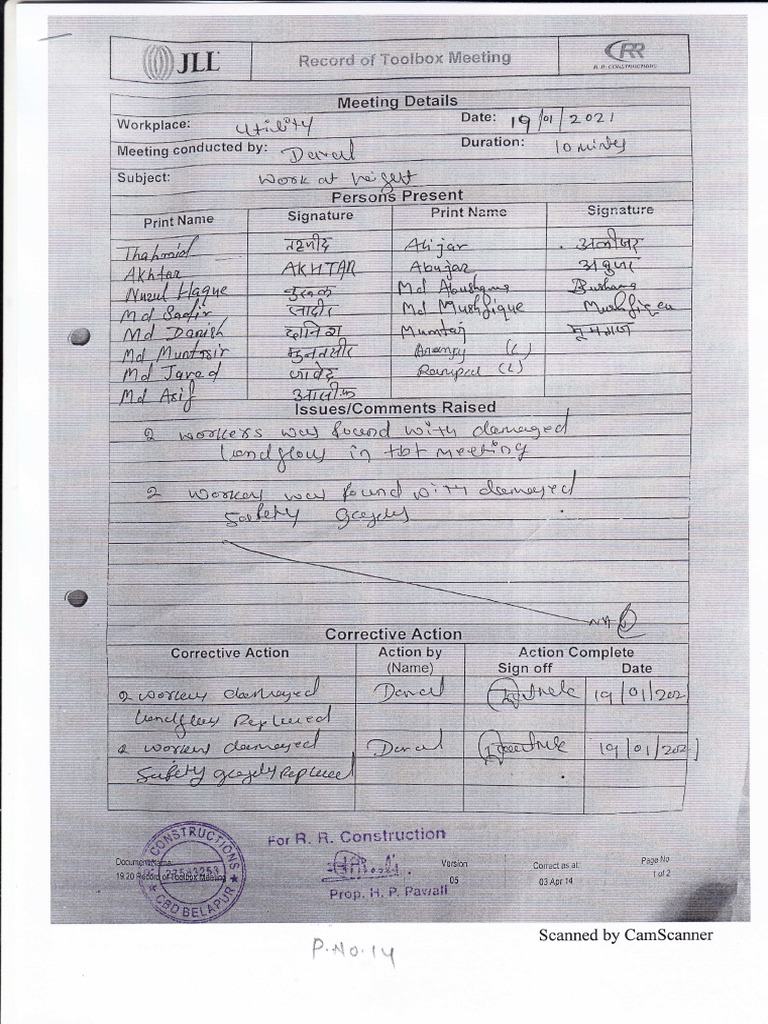 JLL Record of Toolbox Meeting RR
R. R. CONSTRUCTIONS
Meeting Details
Workplace: Utility Date: 19/01/2021
Meeting conducted by: Duration: 10
Subject: Work at
Persons Present
Print Name Signature Print Name Signature
तहमीद Alijar अलीजर
Akhtar AKHTAR Abujar अबुजर
Nurul Haque Md
Md Sadir Md Mushfique
Md Danish दानिश Mumtaj
Md Muntsir मुनतसीर (L)
Md Javed जावेद (L)
Md Asif
Issues/Comments Raised
2 workers was found with damaged
in tbt meeting
2 was found with damaged
Safety
NA
Corrective Action
Corrective Action Action by (Name) Action Complete
Sign off Date
2 workers damaged 19/01/202
Replaced
2 workers damaged 19/01/202
Safety Replaced
CONSTRUCTIONS
27583253
CBD BELAPUR
For R. R. Construction
Prop. H. P. Pawali
Document Name: Version Correct as at: Page No
19.20 Record of Toolbox Meeting 05 03 Apr 14 1 of 2
Scanned by CamScanner
P.No.14